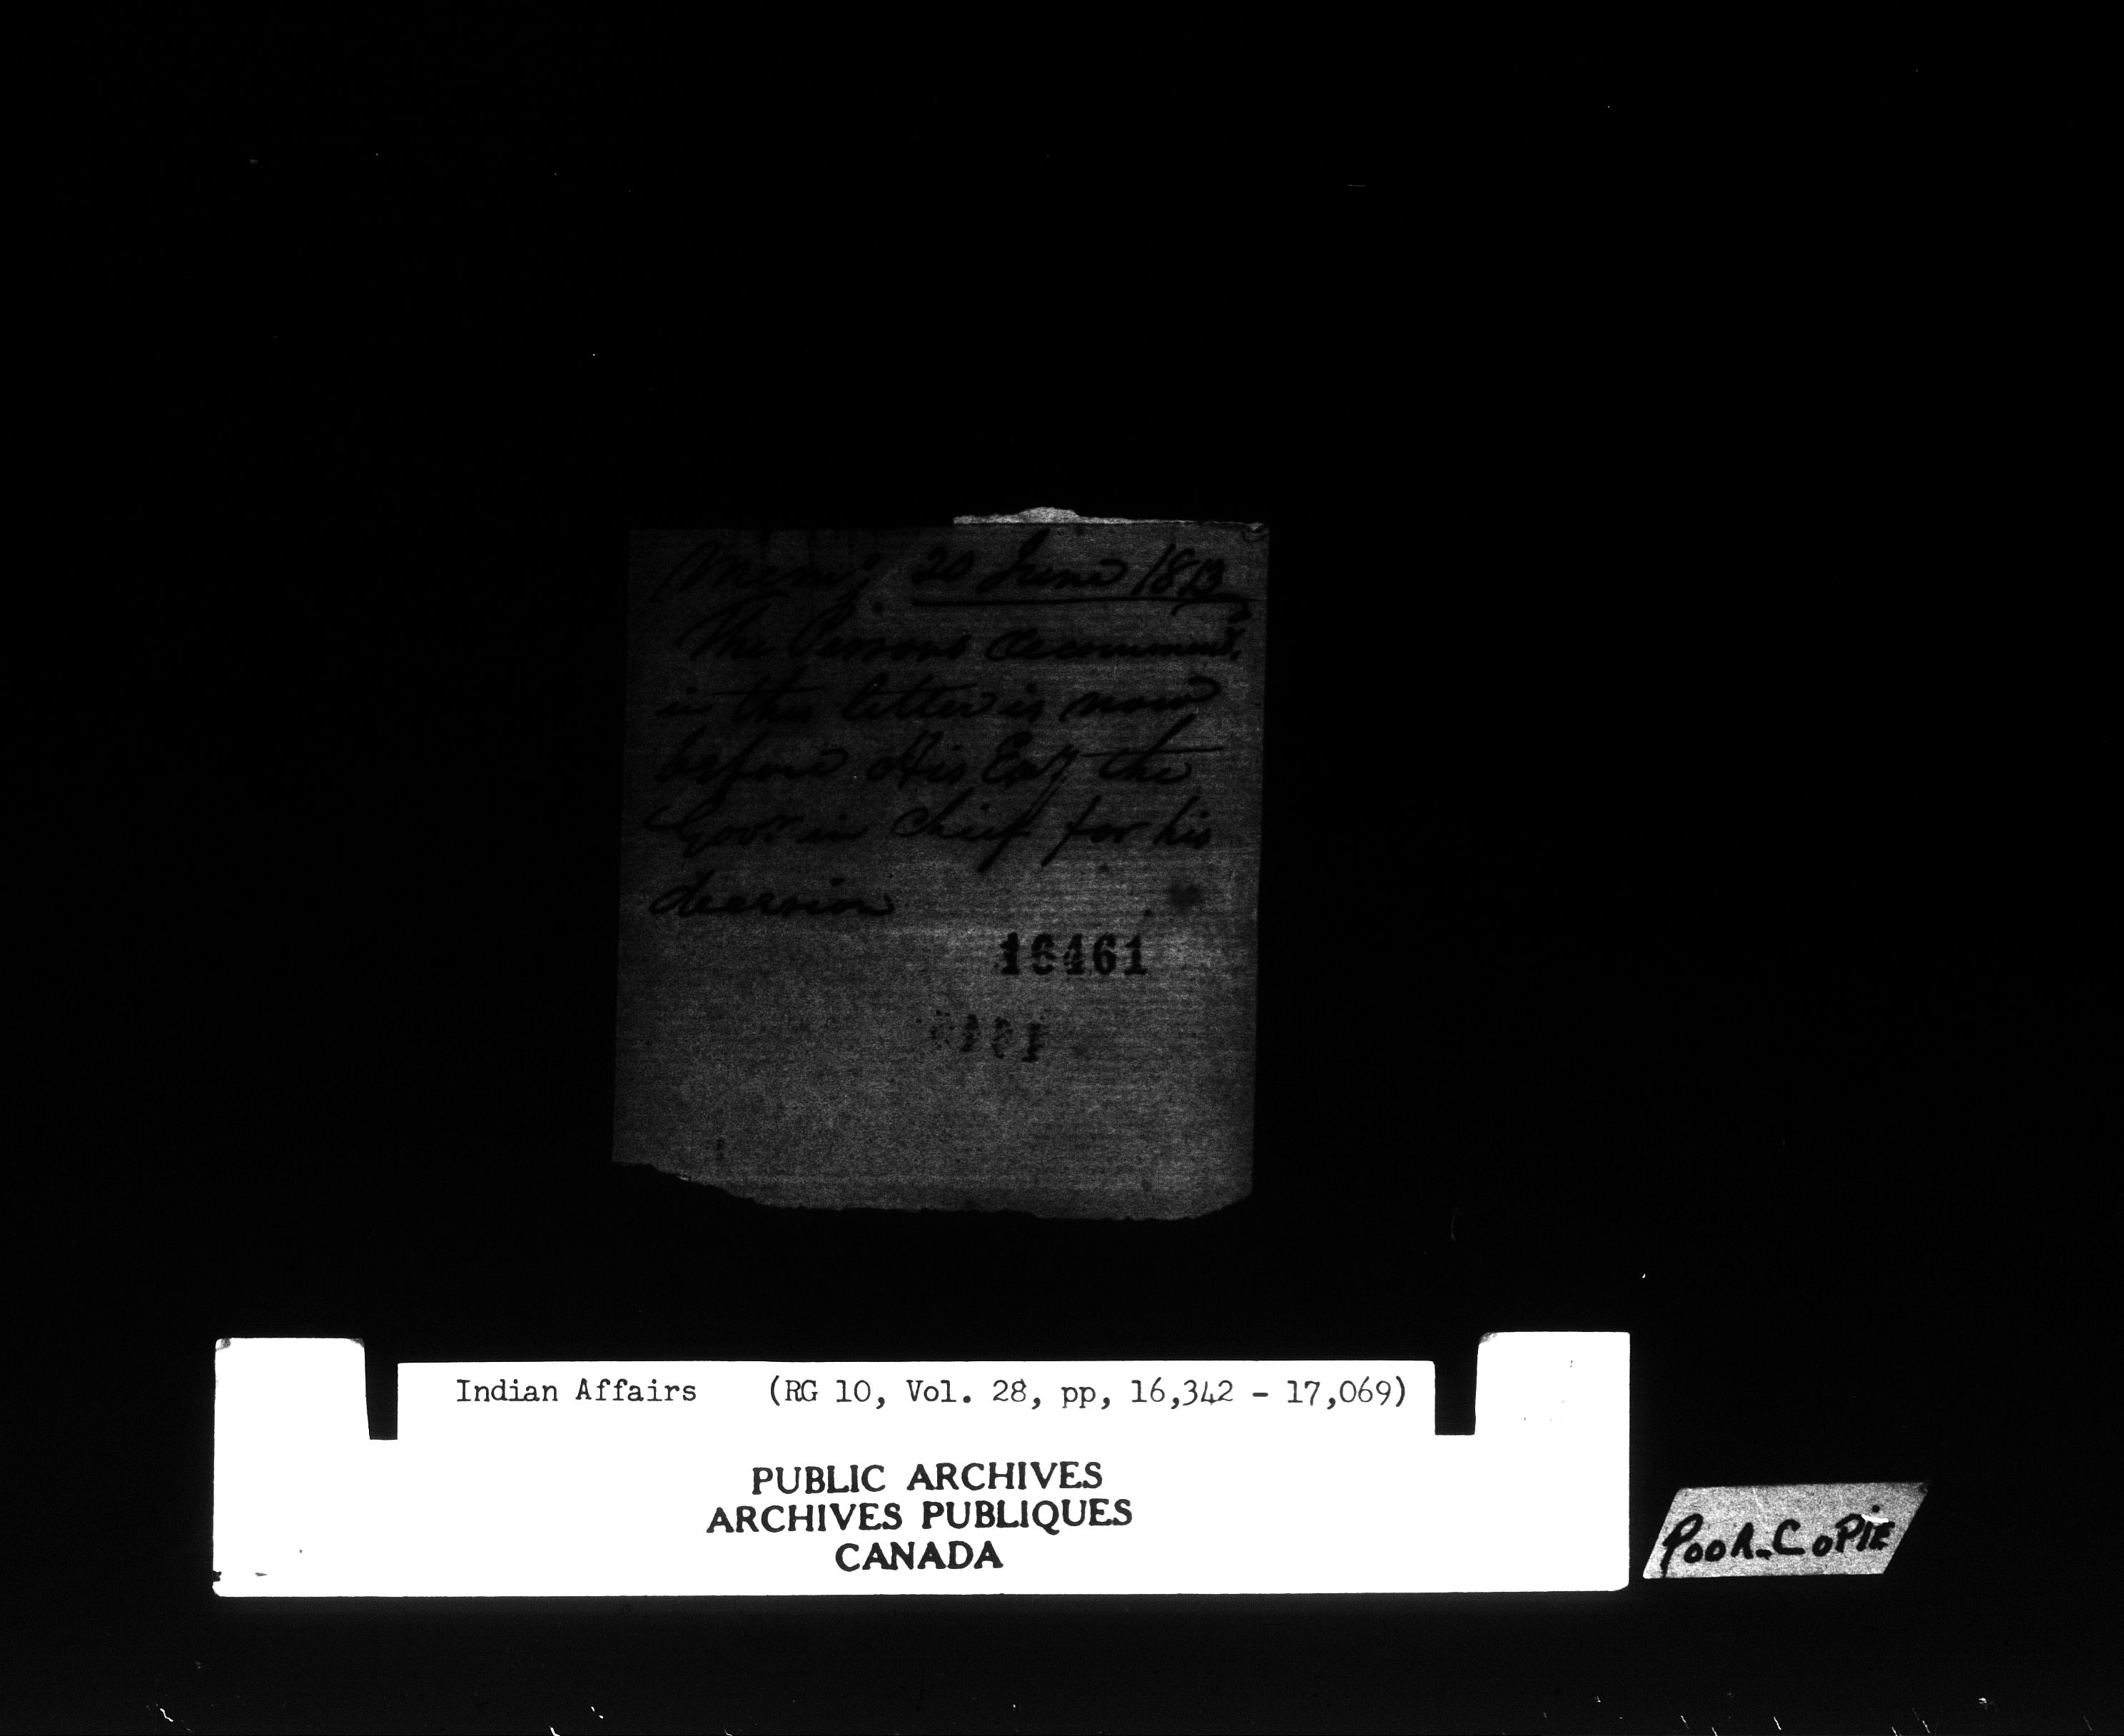 Memo. 20 June 1813
The Persons recommend.
in this letter is now
before His Exy the
Govr in Chief for his
decision
16461
Indian Affairs (RG 10, Vol. 28, pp, 16,342 - 17,069)
PUBLIC ARCHIVES
ARCHIVES PUBLIQUES
CANADA
POOR-COPIE